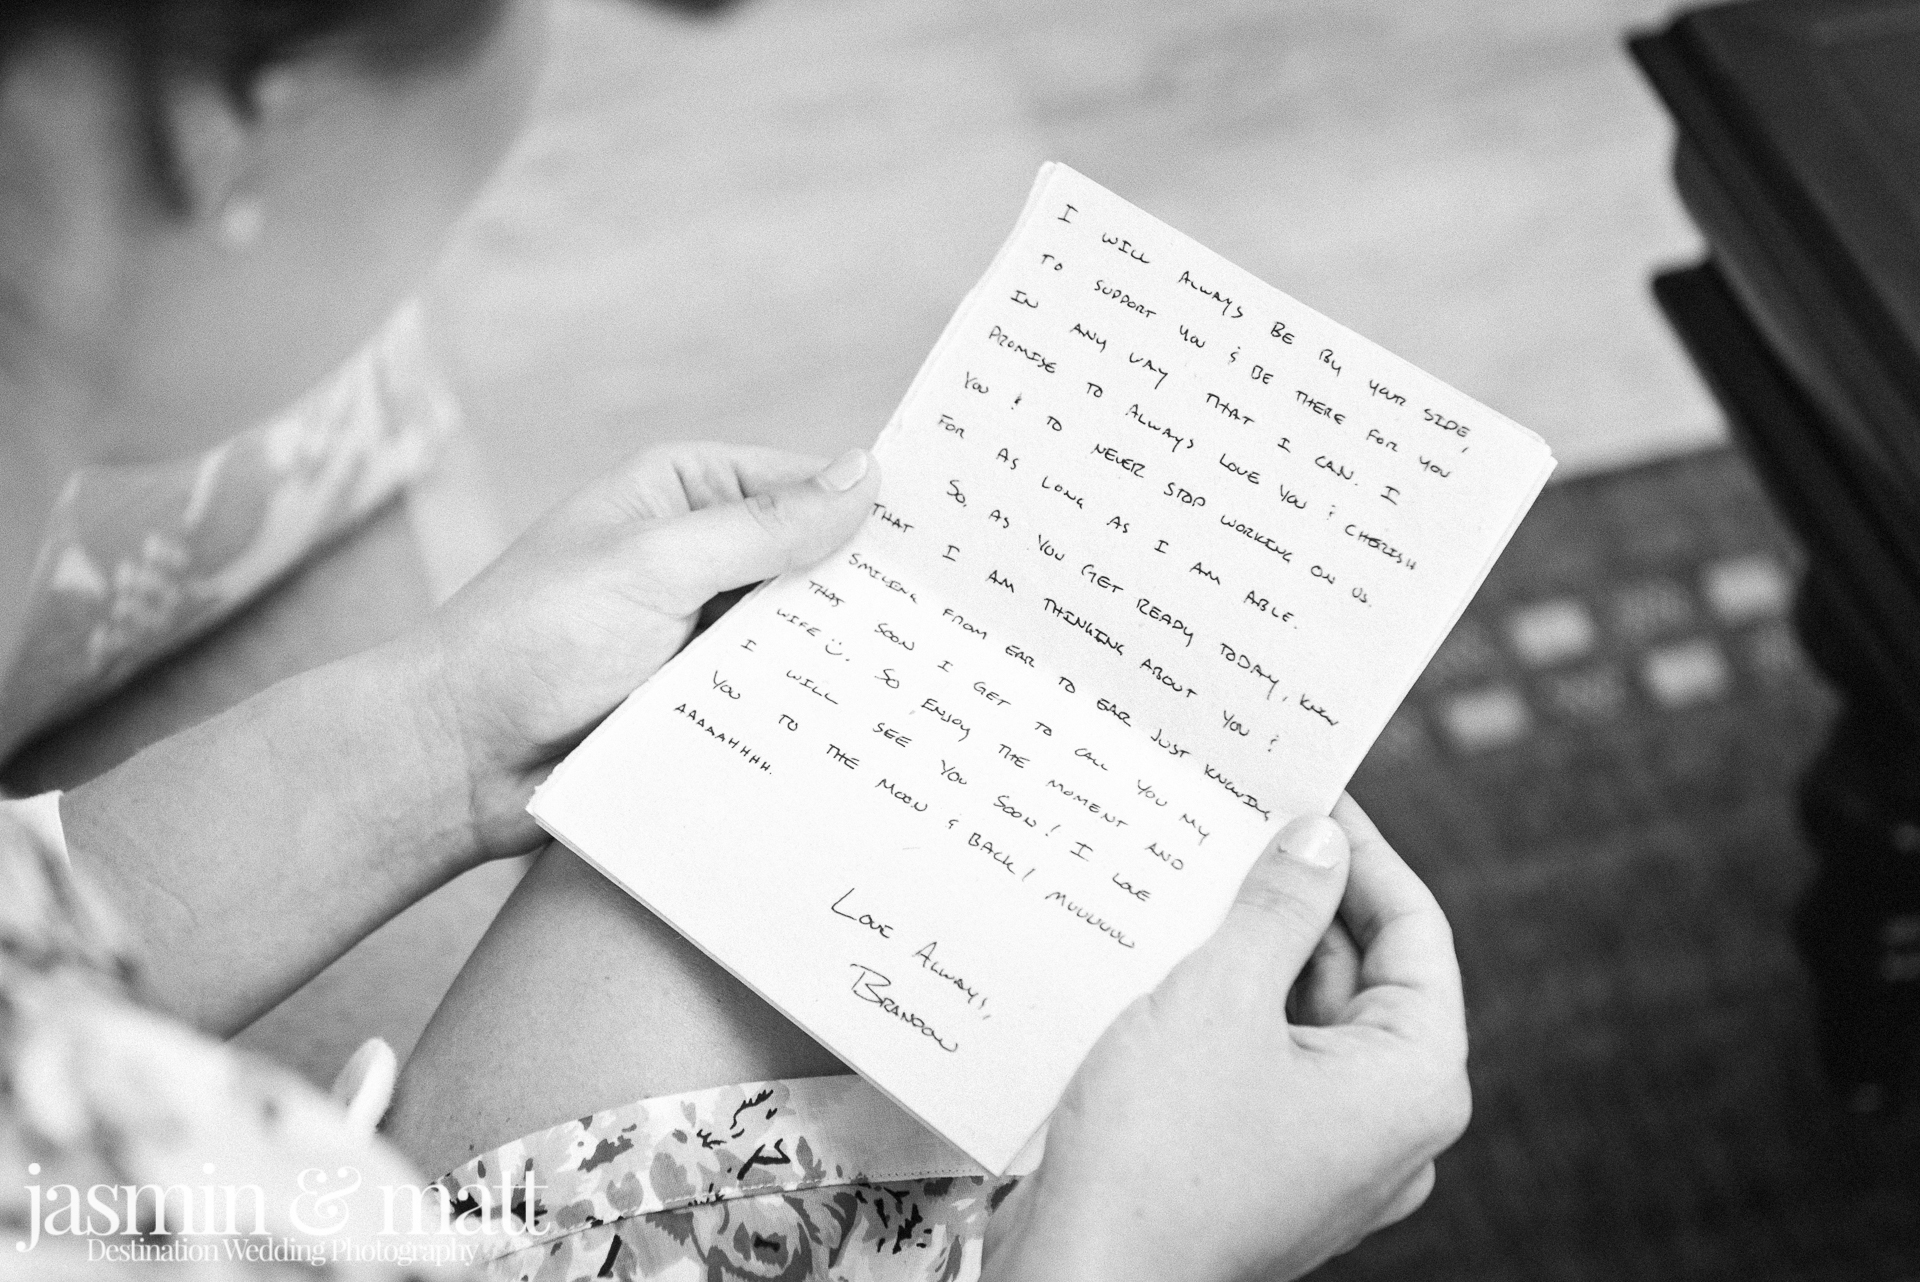 I WILL ALWAYS BE BY YOUR SIDE,
TO SUPPORT YOU & BE THERE FOR YOU
IN ANY WAY THAT I CAN. I
PROMISE TO ALWAYS LOVE YOU & CHERISH
YOU & TO NEVER STOP WORKING ON US.
FOR AS LONG AS I AM ABLE.
SO, AS YOU GET READY TODAY, KNOW
THAT I AM THINKING ABOUT YOU &
SMILING FROM EAR TO EAR JUST KNOWING
THAT SOON I GET TO CALL YOU MY
WIFE :). SO ENJOY THE MOMENT AND
I WILL SEE YOU SOON! I LOVE
YOU TO THE MOON & BACK! MUUUUUU
AAAAAHHHH.
LOVE ALWAYS,
BRANDON
jasmin & matt
Destination Wedding Photography